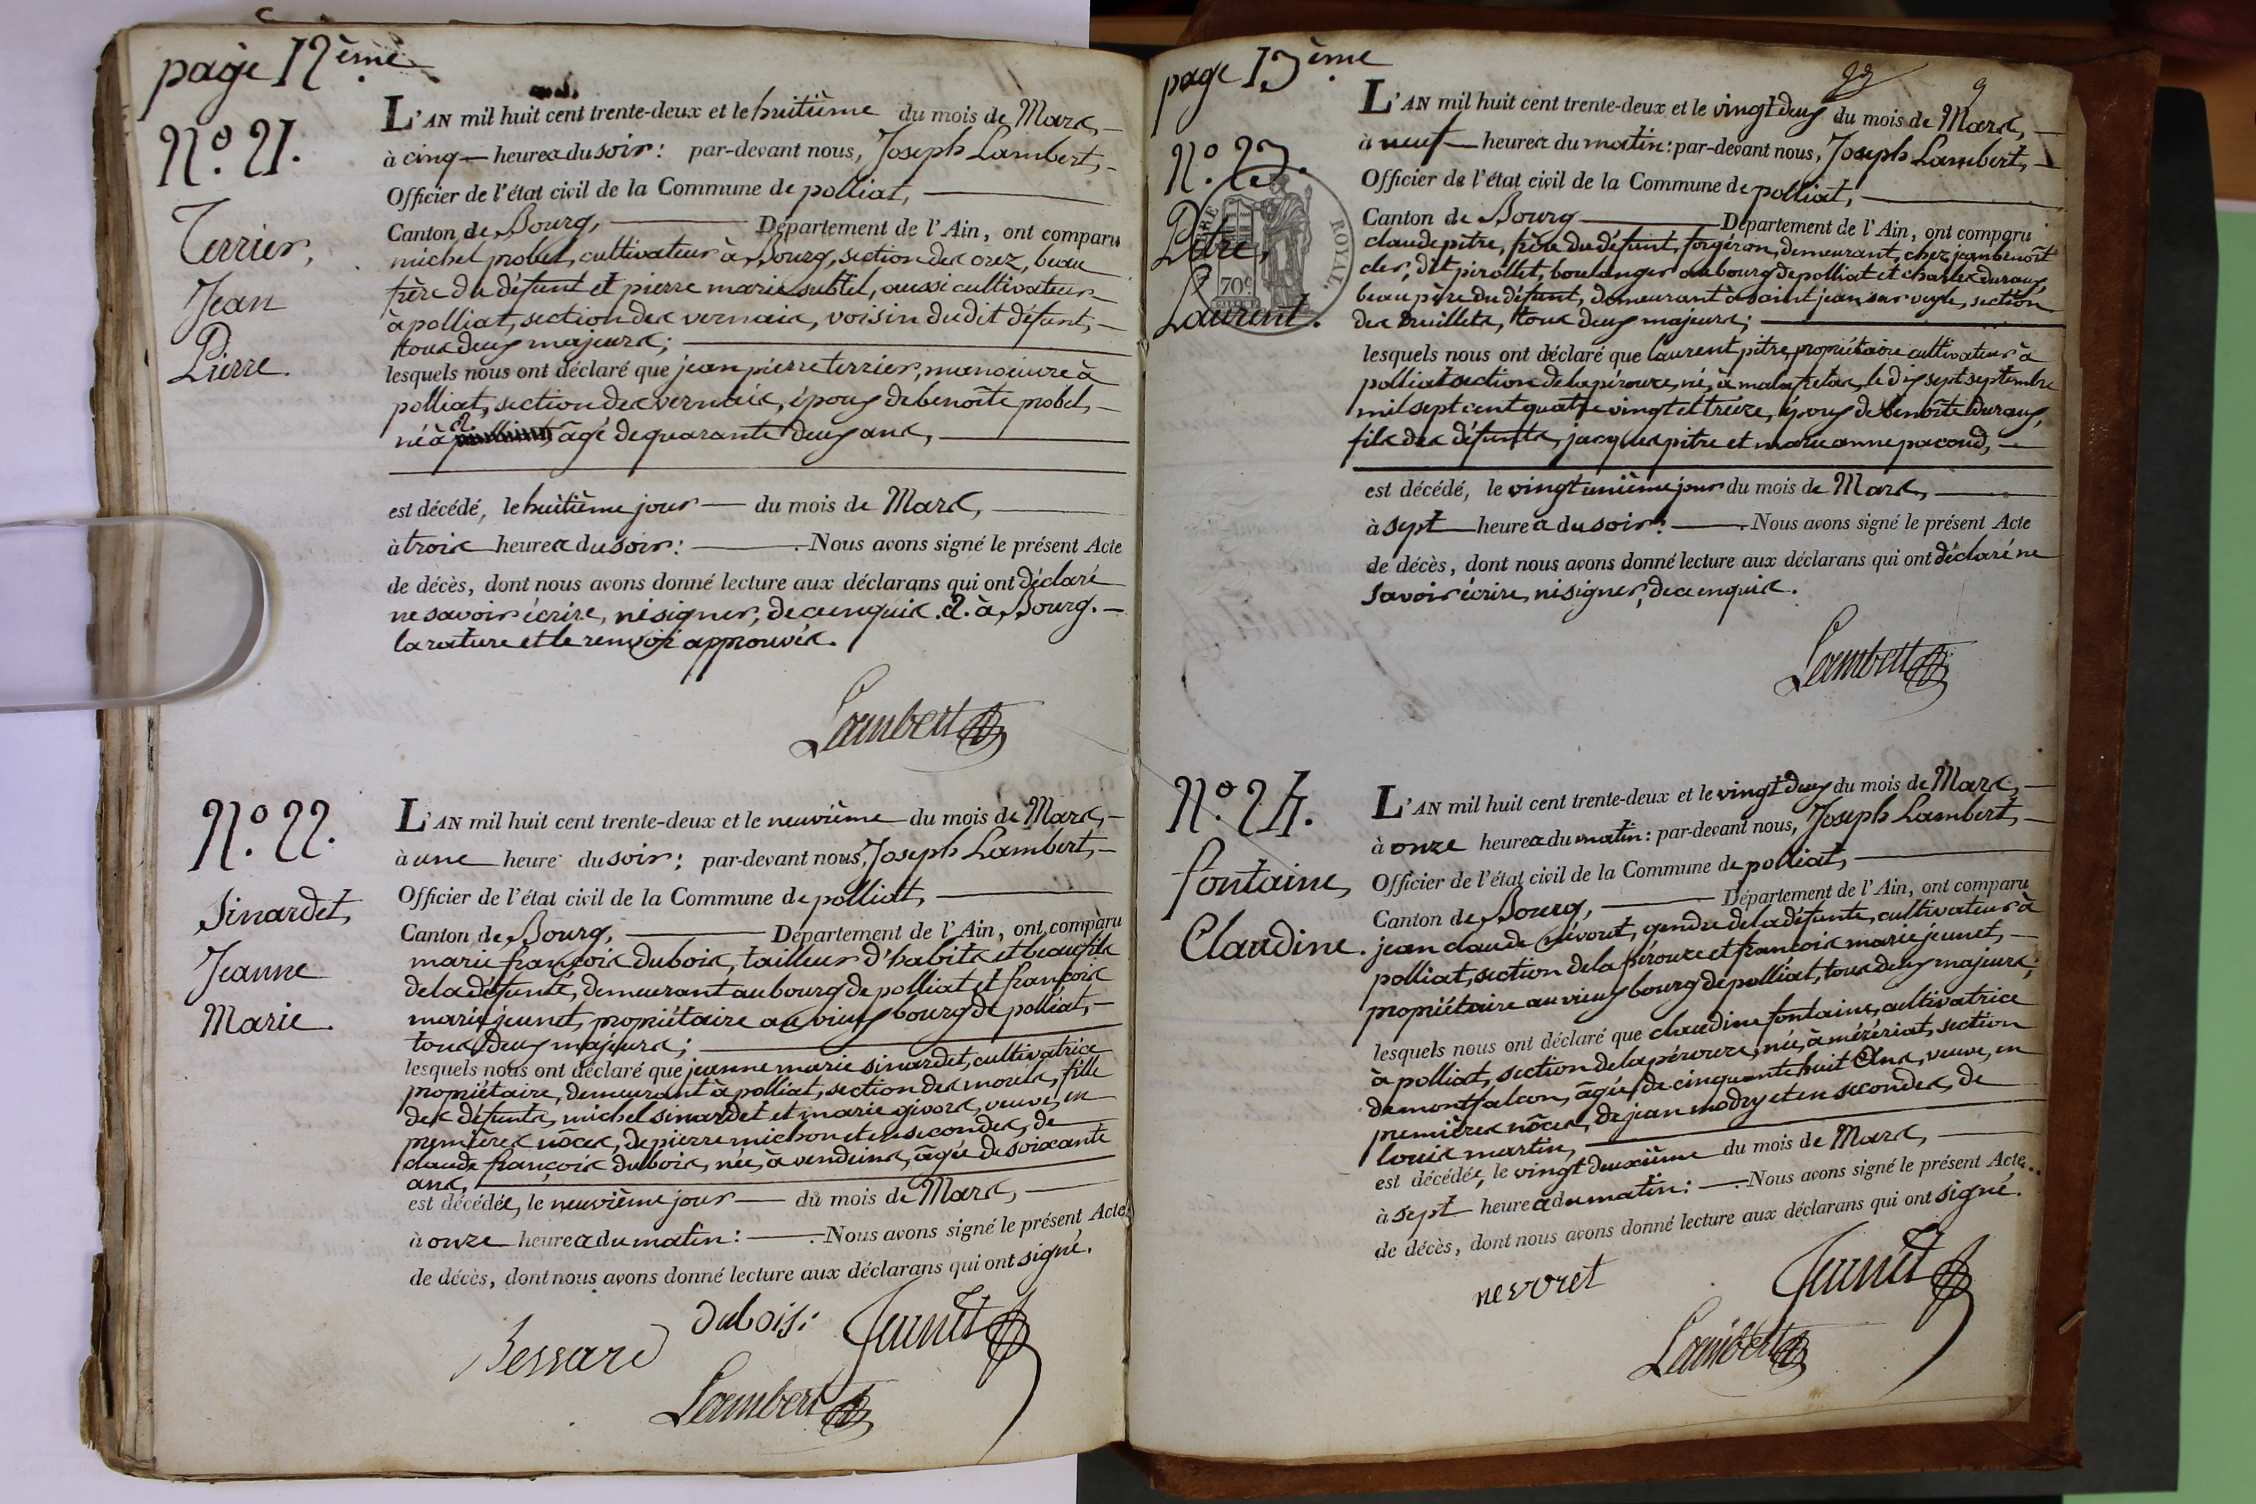 page 12ème
N.° 21.
Terrier,
Jean
Pierre.
L'AN mil huit cent trente-deux et le huitième du mois de Mars,
à cinq heures du soir: par-devant nous, Joseph Lambert,
Officier de l'état civil de la Commune de polliat,
Canton de Bourg, Département de l'Ain, ont comparu
michel probel, cultivateur à Bourg, section des orez, beau
frère du défunt et pierre marie subtil, aussi cultivateur
à polliat, section des vernais, voisin dudit défunt,
tous deux majeurs;
lesquels nous ont déclaré que jean pierre terrier, manoeuvre à
polliat, section des vernais, époux de benoîte probel,
né à âgé de quarante deux ans,
est décédé, le huitième jour du mois de Mars,
à trois heures du soir: Nous avons signé le présent Acte
de décès, dont nous avons donné lecture aux déclarans qui ont déclaré
ne savoir écrire, ni signer, de ce enquis. à Bourg.
la rature et le renvoi approuvés.
Lambert
N.° 22.
Sinardet,
Jeanne
Marie.
L'AN mil huit cent trente-deux et le neuvième du mois de Mars,
à une heure du soir: par-devant nous, Joseph Lambert,
Officier de l'état civil de la Commune de polliat,
Canton de Bourg, Département de l'Ain, ont comparu
marie françois dubois, tailleur d'habits et beau fils
de la défunte, demeurant au bourg de polliat et françois
marie jeunet, propriétaire au vieux bourg de polliat,
tous deux majeurs;
lesquels nous ont déclaré que jeanne marie sinardet, cultivatrice
propriétaire, demeurant à polliat, section des morels, fille
des défunts, michel sinardet et marie givors, veuve, en
premières nôces, de pierre michon et en secondes, de
claude françois dubois, née, à vendeins, âgée de soixante
ans,
est décédée, le neuvième jour du mois de Mars,
à onze heures du matin: Nous avons signé le présent Acte
de décès, dont nous avons donné lecture aux déclarans qui ont signé.
dubois: Jeunet
Bessard
Lambert
page 13ème
N.° 23.
Pitre,
Laurent.
ROYAL.
70c
L'AN mil huit cent trente-deux et le vingt deux du mois de Mars,
à neuf heures du matin: par-devant nous, Joseph Lambert,
Officier de l'état civil de la Commune de polliat,
Canton de Bourg Département de l'Ain, ont comparu
claude pitre, frère du défunt, forgéron, demeurant, chez jean benoît
cler, dit pirollet, boulanger au bourg de polliat et charles duraux,
beau père du défunt, demeurant à saint jean sur veyle, section
des truillets, tous deux majeurs;
lesquels nous ont déclaré que laurent pitre, propriétaire cultivateur à
polliat section de la pérouze, né, à malafretas, le dix sept septembre
mil sept cent quatre vingt et treize, époux de benoîte duraux,
fils des défunts, jacques pitre et marie anne pacoud,
est décédé, le vingt unième jour du mois de Mars,
à sept heures du soir: Nous avons signé le présent Acte
de décès, dont nous avons donné lecture aux déclarans qui ont déclaré ne
savoir écrire, ni signer, de ce enquis.
Lambert
N.° 24.
fontaine,
Claudine.
L'AN mil huit cent trente-deux et le vingt deux du mois de Mars,
à onze heures du matin: par-devant nous, Joseph Lambert,
Officier de l'état civil de la Commune de polliat,
Canton de Bourg, Département de l'Ain, ont comparu
jean claude névoret, gendre de la défunte, cultivateur à
polliat, section de la pérouze et françois marie jeunet,
propriétaire au vieux bourg de polliat, tous deux majeurs;
lesquels nous ont déclaré que claudine fontaine, cultivatrice
à polliat, section de la pérouze, née, à mézériat, section
de montfalcon, âgée de cinquante huit Ans, veuve, en
premières nôces, de jean modry et en secondes, de
louis martin,
est décédée, le vingt deuxième du mois de Mars,
à sept heures du matin: Nous avons signé le présent Acte
de décès, dont nous avons donné lecture aux déclarans qui ont signé.
nevoret Jeunet
Lambert